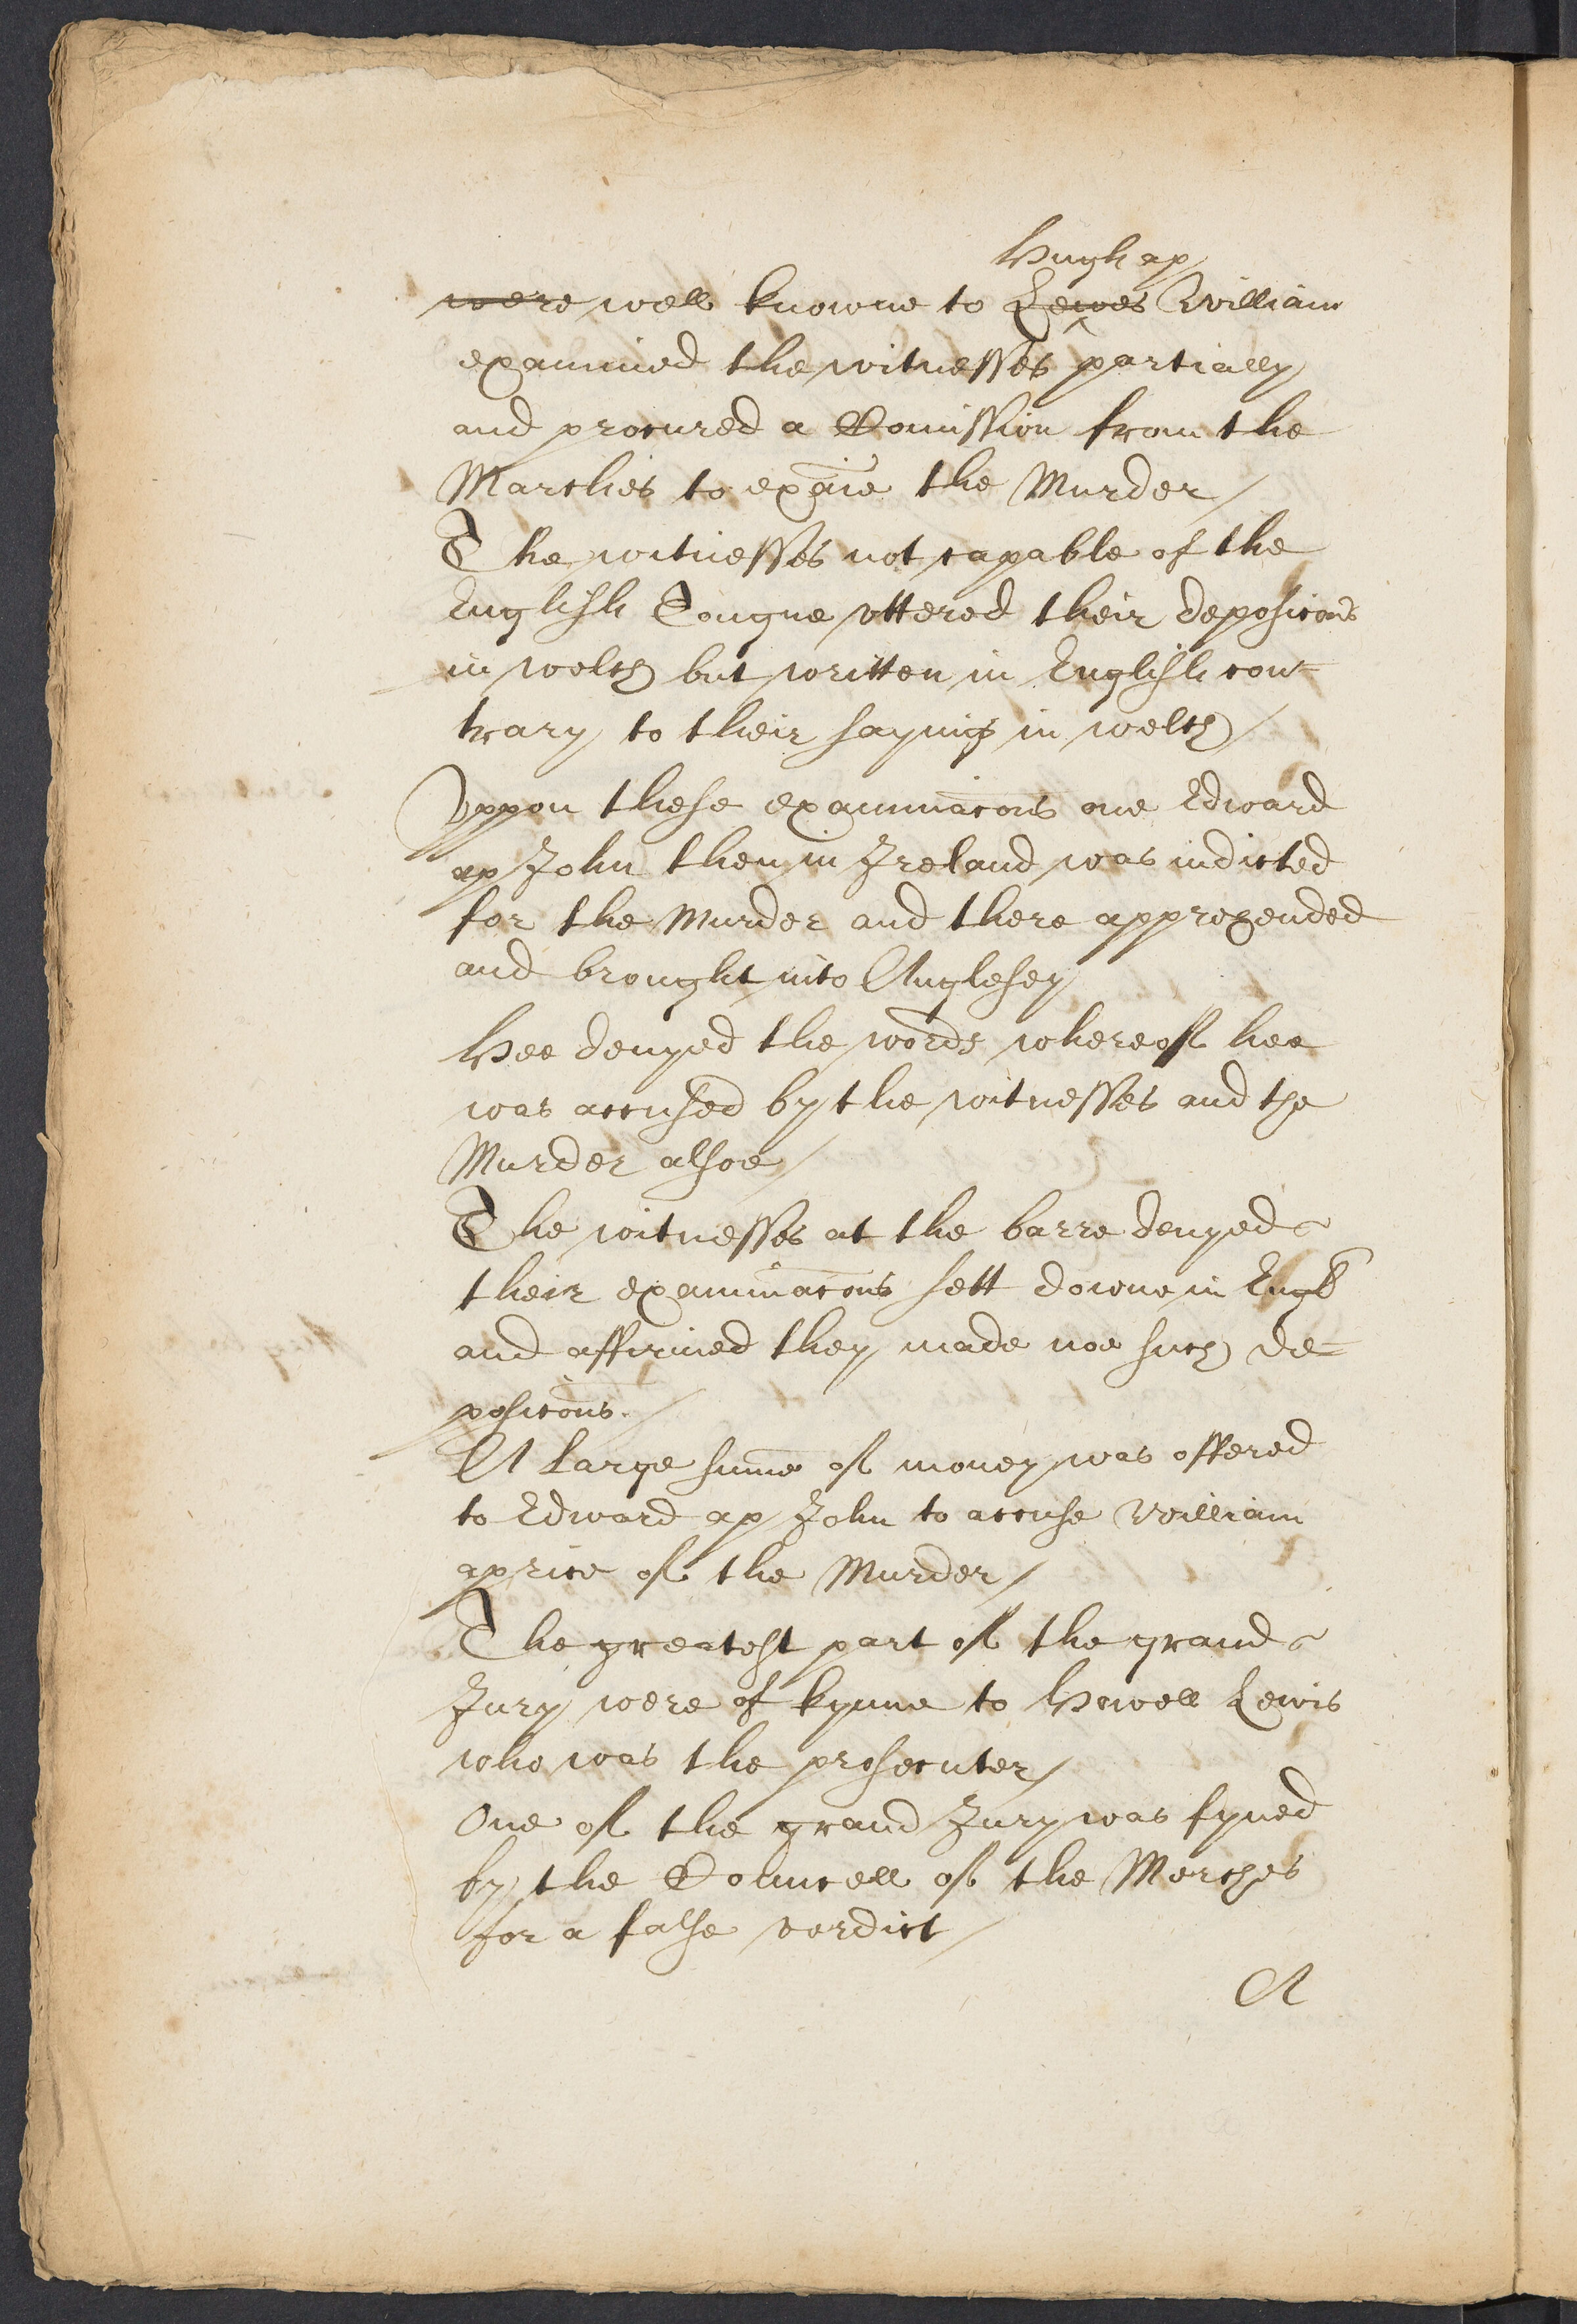 Hugh ap
were well knowne to Lewes William
examined the witnesses partially
and procured a Comission from the
Marches to exaie the Murder /
The witnesses not capable of the
English Tongue vttered their deposicons
in welch but written in English con=
trary to their sayings in welch /
Vppon these examinacons one Edward
ap John then in Ireland was indicted
for the Murder and there apprehended
and brought into Anglesey
Hee denyed the words whereof hee
was accused by the witnesses and the
Murder alsoe /
The witnesses at the barre denyed
their examinacons sett downe in Engl
and affirmed they made noe such de=
posicons. /
A large summe of money was offered
to Edward ap John to accuse William
aprice of the Murder /
The greatest part of the grand
Jury were of kynne to Howell Lewis
who was the prosecuter /
One of the grand Jury was fyned
by the Councell of the Merches
for a false verdict /
A